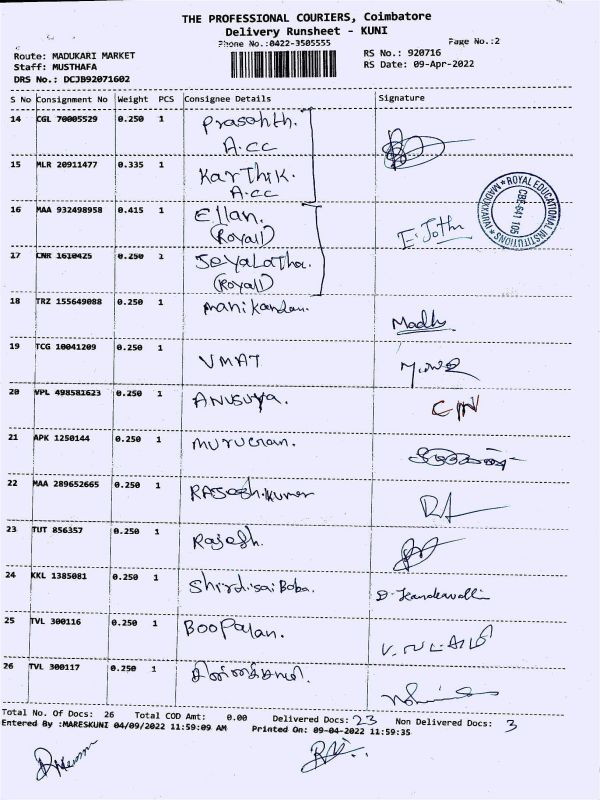 THE PROFESSIONAL COURIERS, Coimbatore
Delivery Runsheet - KUNI
Phone No.:0422-3505555
Page No.:2
Route: MADUKARI MARKET
RS No.: 920716
Staff: MUSTHAFA
RS Date: 09-Apr-2022
DRS No.: DCJB92071602
S No Consignment No Weight PCS Consignee Details Signature
14 CGL 70005529 0.250 1 Prasahth.
A.CC
15 MLR 20911477 0.335 1 Karthik.
A.CC
16 MAA 932498958 0.415 1 Ellan.
(Royal) E. Jothi
ROYAL EDUCATIONAL INSTITUTIONS
CBE-641 105
17 CNR 1610425 0.250 1 Jeyalatha.
(Royal)
18 TRZ 155649088 0.250 1 manikandan.
Madhu
19 TCG 10041209 0.250 1 VMAT
20 VPL 498581623 0.250 1 ANUSUYA.
21 APK 1250144 0.250 1 murugan.
22 MAA 289652665 0.250 1 Rasesh.kumar
23 TUT 856357 0.250 1 Rajesh.
24 KKL 1385081 0.250 1 Shirdisai Baba.
25 TVL 300116 0.250 1 Boopalan.
26 TVL 300117 0.250 1
Total No. Of Docs: 26 Total COD Amt: 0.00 Delivered Docs: 23 Non Delivered Docs: 3
Entered By :MARESKUNI 04/09/2022 11:59:09 AM Printed On: 09-04-2022 11:59:35